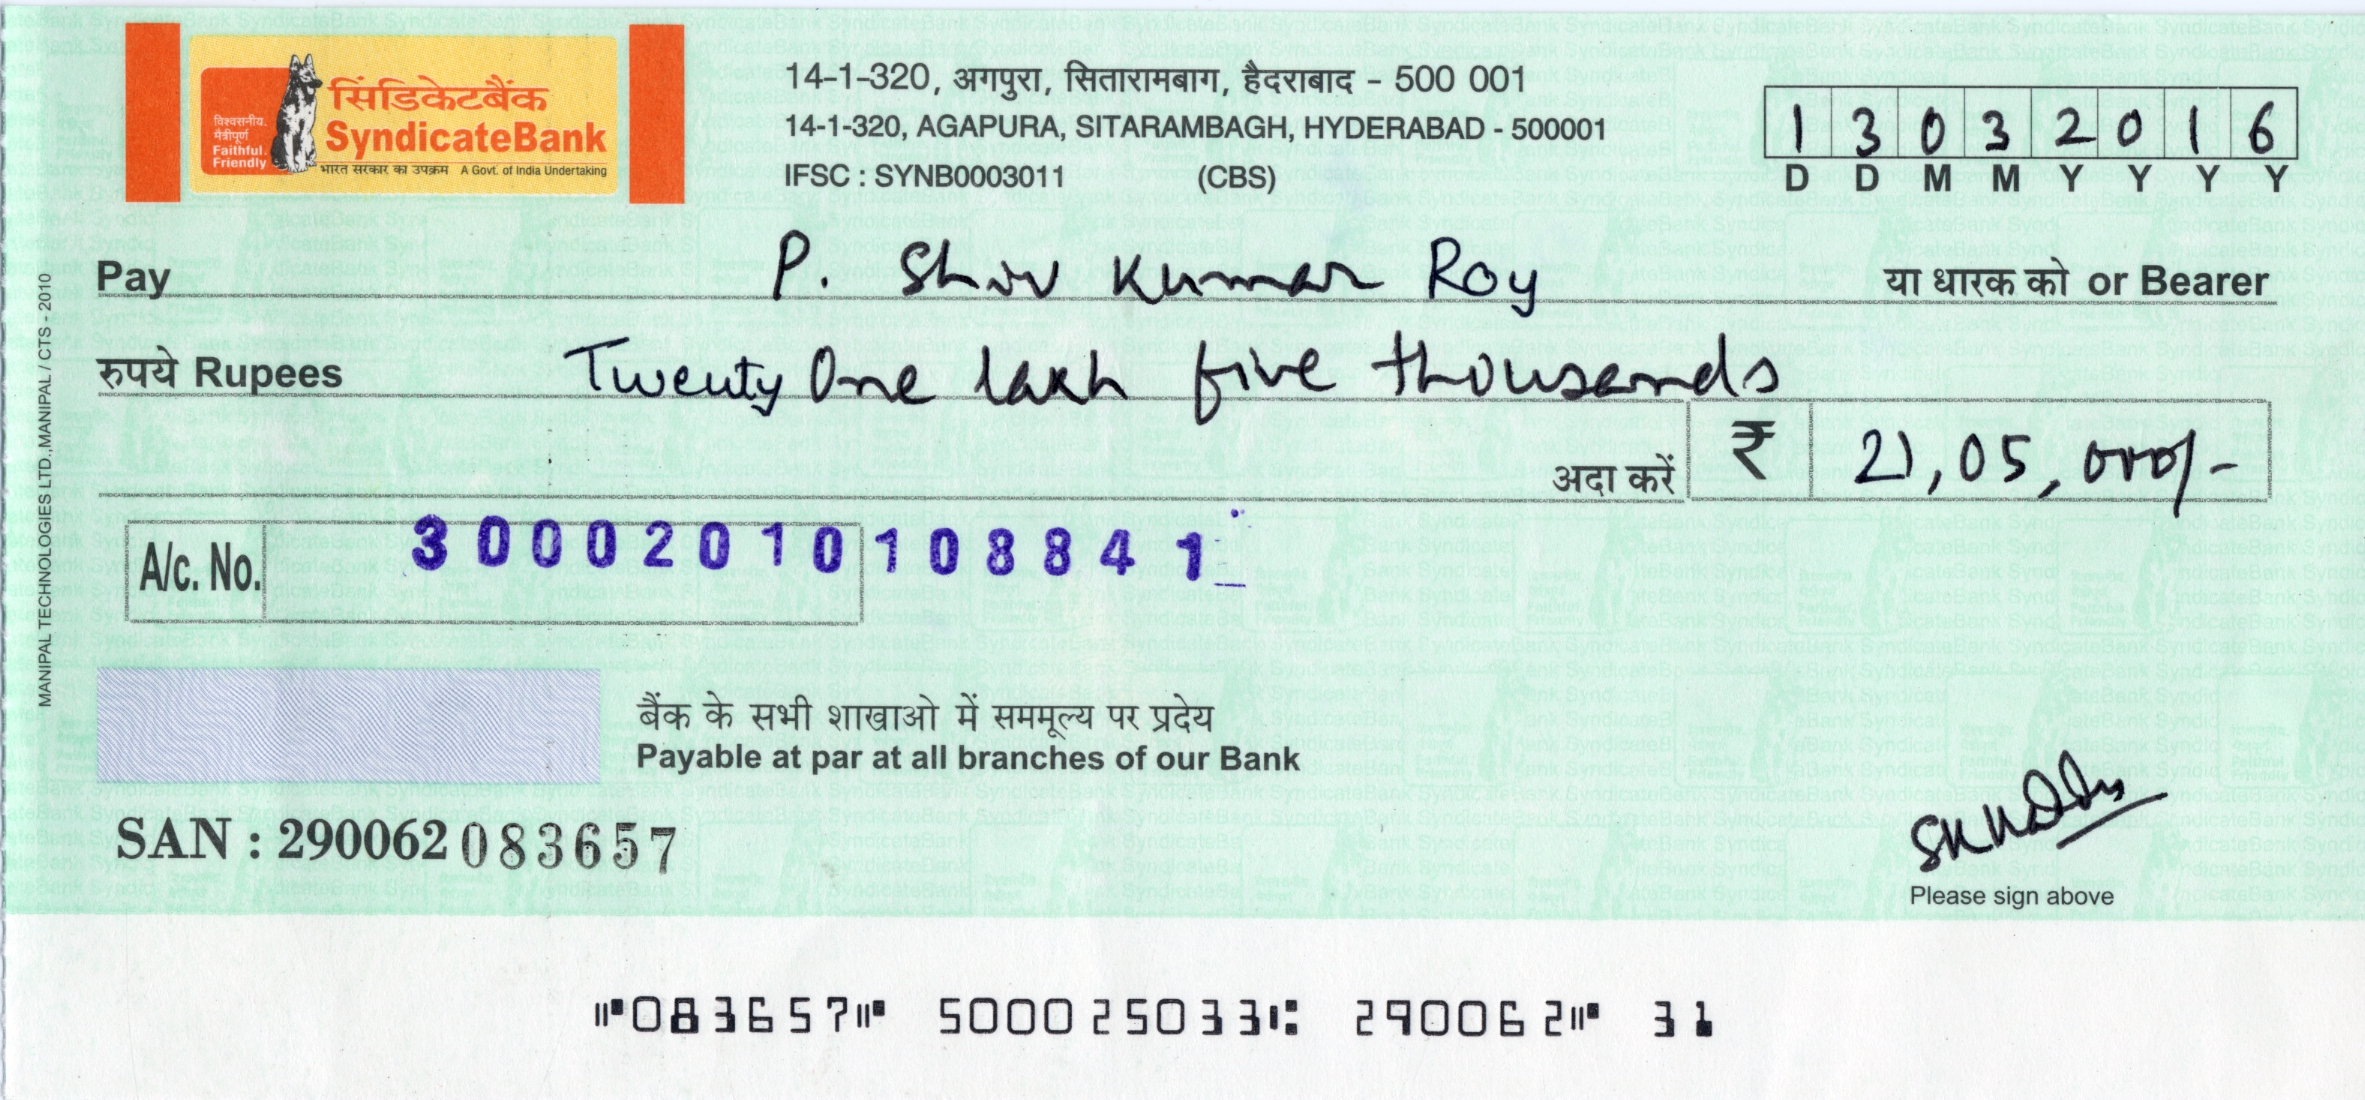 सिंडिकेटबैंक
SyndicateBank
विश्वसनीय.
मैत्रीपूर्ण
Faithful.
Friendly
भारत सरकार का उपक्रम A Govt. of India Undertaking
14-1-320, अगपुरा, सितारामबाग, हैदराबाद - 500 001
14-1-320, AGAPURA, SITARAMBAGH, HYDERABAD - 500001
IFSC : SYNB0003011 (CBS)
1 3 0 3 2 0 1 6
D D M M Y Y Y Y
Pay P. Shiv Kumar Roy या धारक को or Bearer
रुपये Rupees Twenty One lakh five thousands
अदा करें ₹ 21,05,000/-
A/c. No. 30002010108841
MANIPAL TECHNOLOGIES LTD.,MANIPAL / CTS - 2010
बैंक के सभी शाखाओ में सममूल्य पर प्रदेय
Payable at par at all branches of our Bank
SAN : 290062 083657
Please sign above
⑈083657⑈ 500025033⑆ 290062⑈ 31